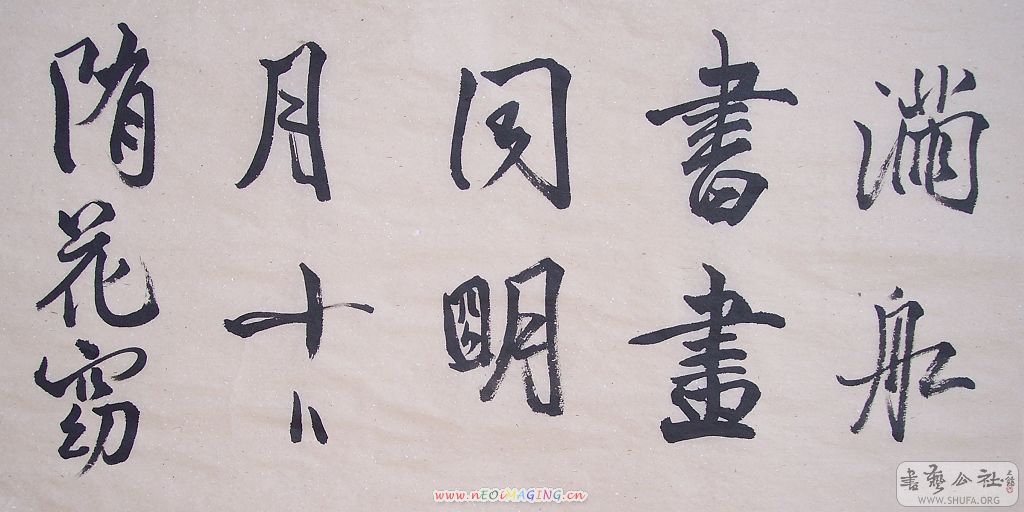 滿船
書畫
同明
月十
隋花窈
www.nEOiMAGING.cn
書藝公社
WWW.SHUFA.ORG